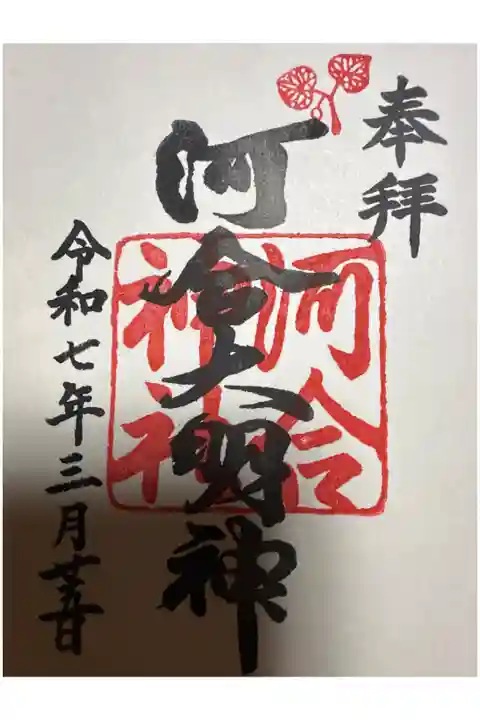 奉拝
河合大明神
河合
神社
令和七年三月廿五日